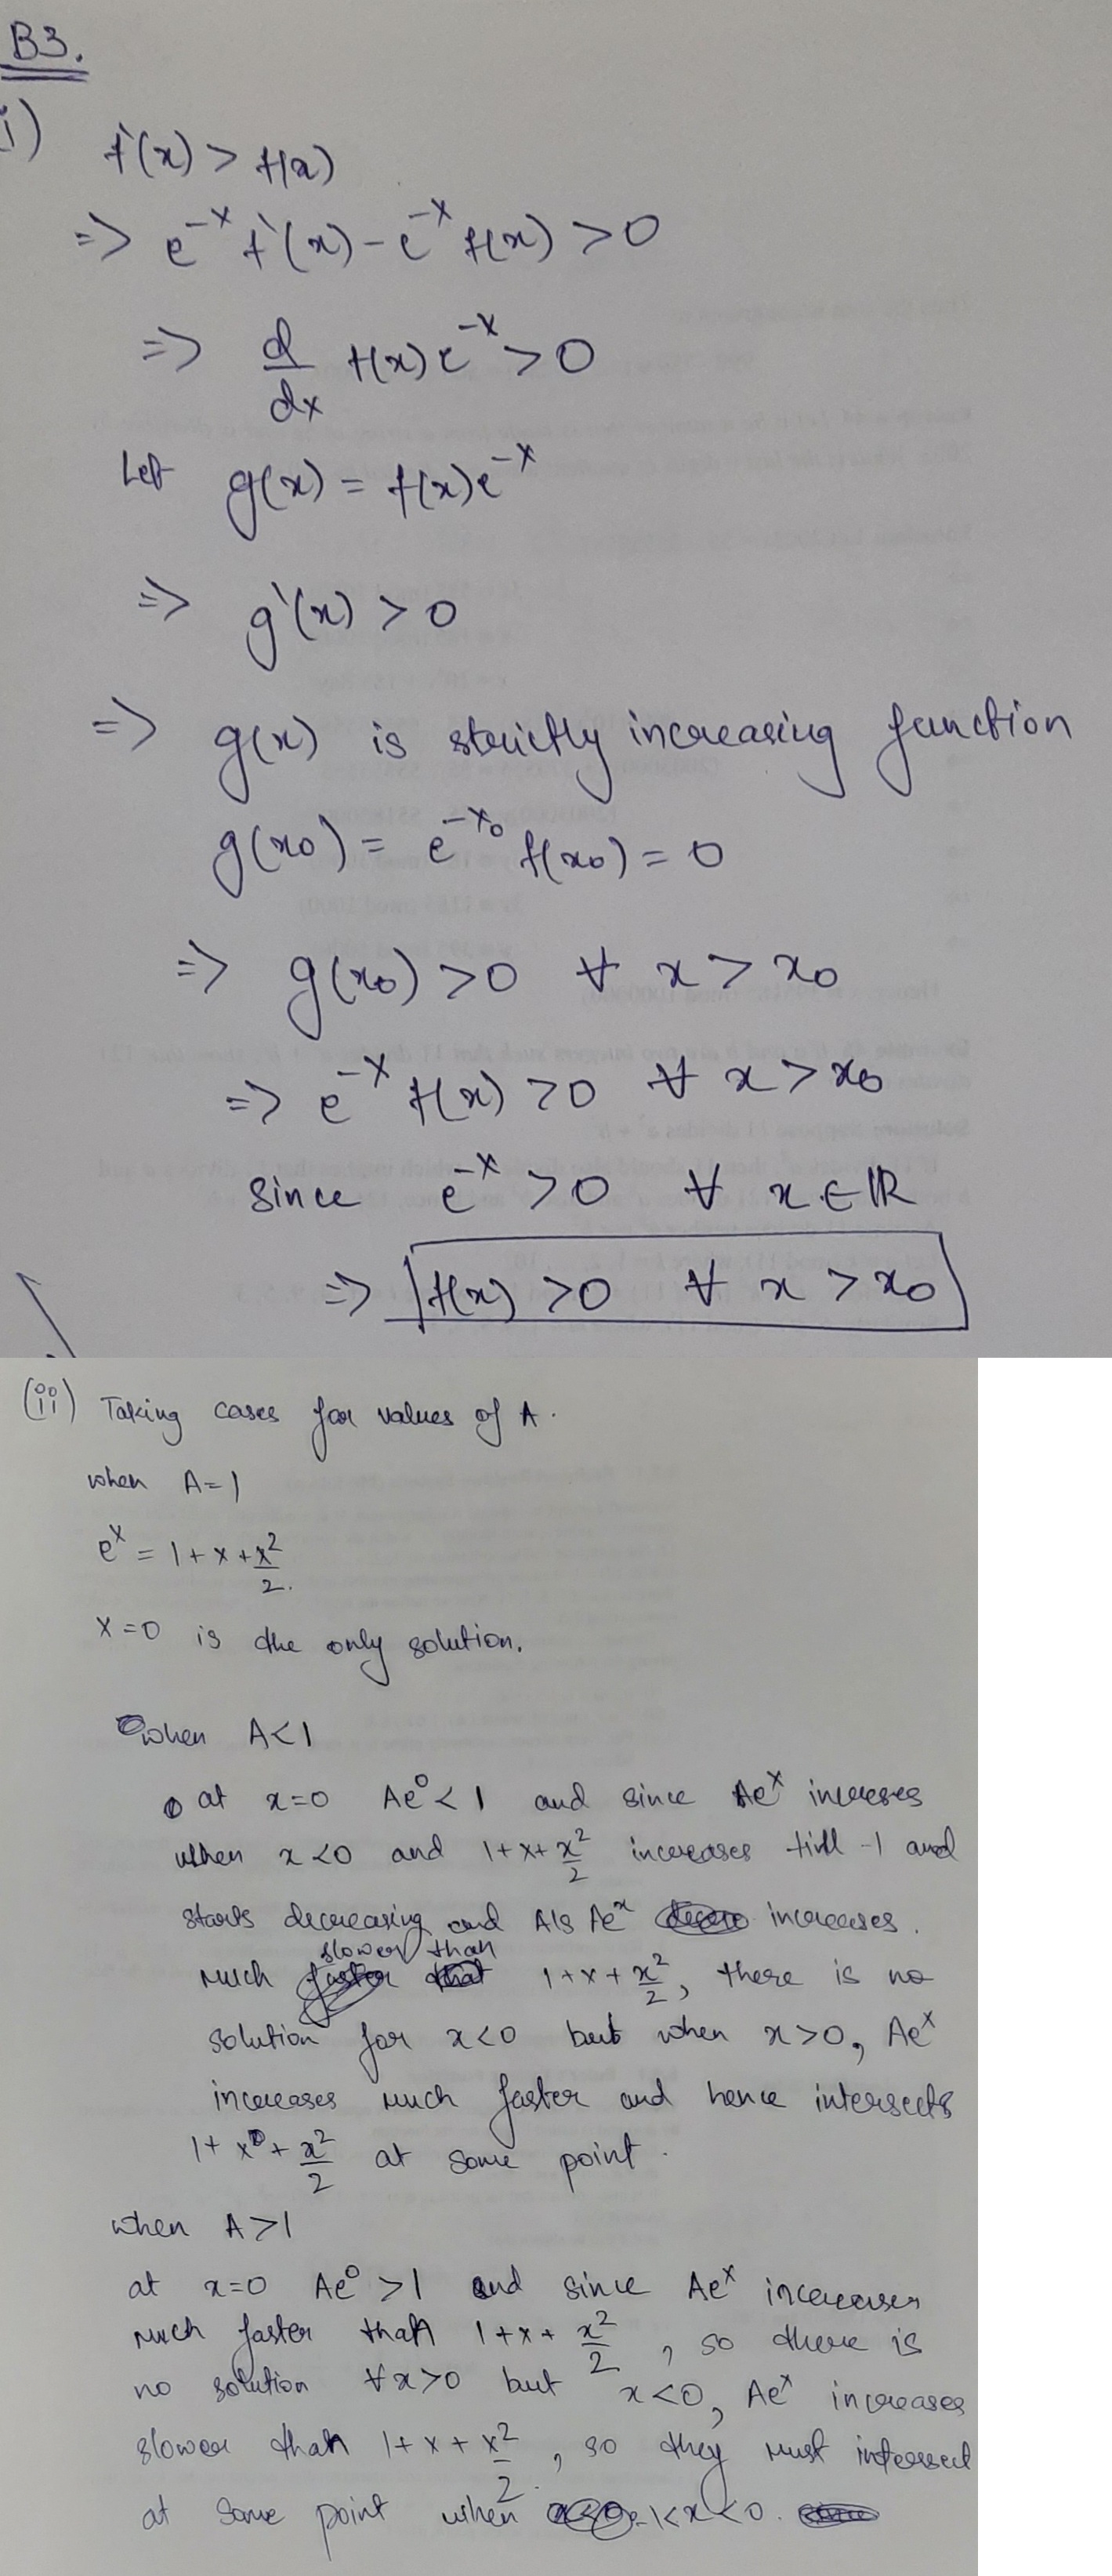 B3.
i) f'(x) > f(x)
=> e^{-x} f'(x) - e^{-x} f(x) > 0
=> d/dx f(x) e^{-x} > 0
Let g(x) = f(x)e^{-x}
=> g'(x) > 0
=> g(x) is strictly increasing function
g(x₀) = e^{-x₀} f(x₀) = 0
=> g(x₀) > 0 ∀ x > x₀
=> e^{-x} f(x) > 0 ∀ x > x₀
since e^{-x} > 0 ∀ x ∈ ℝ
=> f(x) > 0 ∀ x > x₀
(ii) Taking cases for values of A.
when A = 1
e^x = 1 + x + x²/2.
x = 0 is the only solution.
when A < 1
at x = 0 Ae⁰ < 1 and since Ae^x increases
when x < 0 and 1 + x + x²/2 increases till -1 and
starts decreasing and Als Ae^x increases.
much slower than 1 + x + x²/2, there is no
solution for x < 0 but when x > 0, Ae^x
increases much faster and hence intersects
1 + x + x²/2 at some point.
when A > 1
at x = 0 Ae⁰ > 1 and since Ae^x increases
much faster than 1 + x + x²/2, so there is
no solution ∀ x > 0 but x < 0, Ae^x increases
slower than 1 + x + x²/2, so they must intersect
at some point when -1 < x < 0.